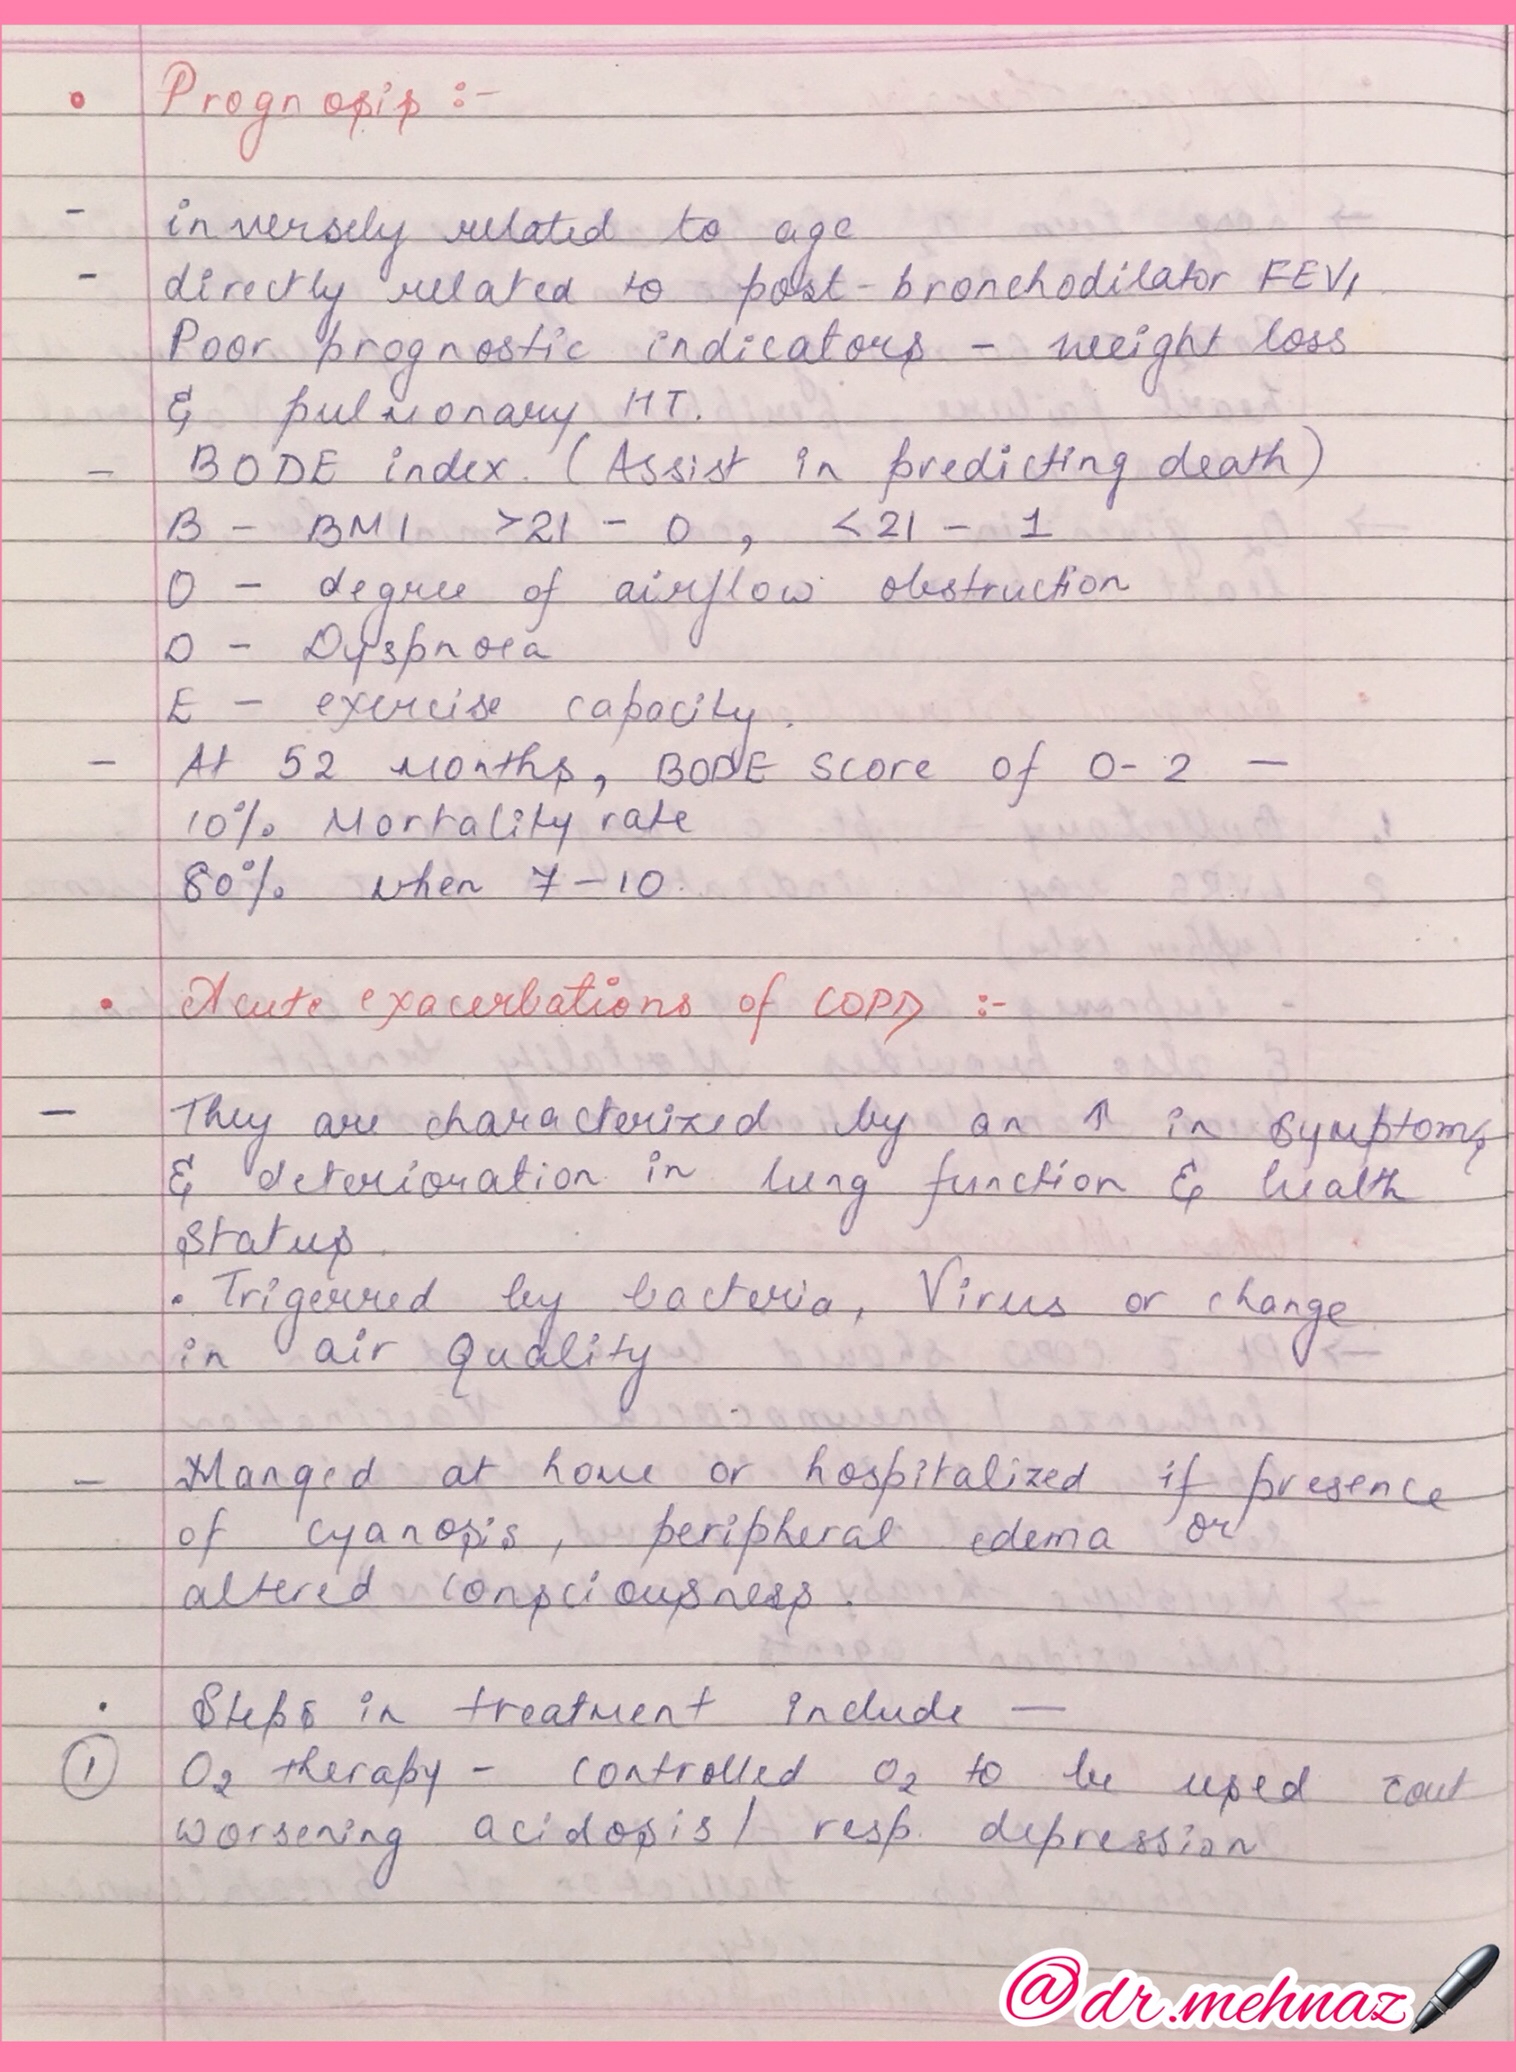 • Prognosis :-
- inversely related to age
- directly related to post-bronchodilator FEV1
Poor prognostic indicators - weight loss
& pulmonary HT.
- BODE index. (Assist in predicting death)
B - BMI >21 - 0, <21 - 1
O - degree of airflow obstruction
D - Dyspnoea
E - exercise capacity.
- At 52 months, BODE score of 0-2 —
10% Mortality rate
80% when 7-10.
• Acute exacerbations of COPD :-
- They are characterized by an ↑ in symptoms
& deterioration in lung function & health
status.
• Trigerred by bacteria, Virus or change
in air Quality
- Manged at home or hospitalized if presence
of cyanosis, peripheral edema or
altered consciousness.
• Steps in treatment include —
① O2 therapy - controlled O2 to be used c̄out
worsening acidosis / resp. depression
@dr.mehnaz